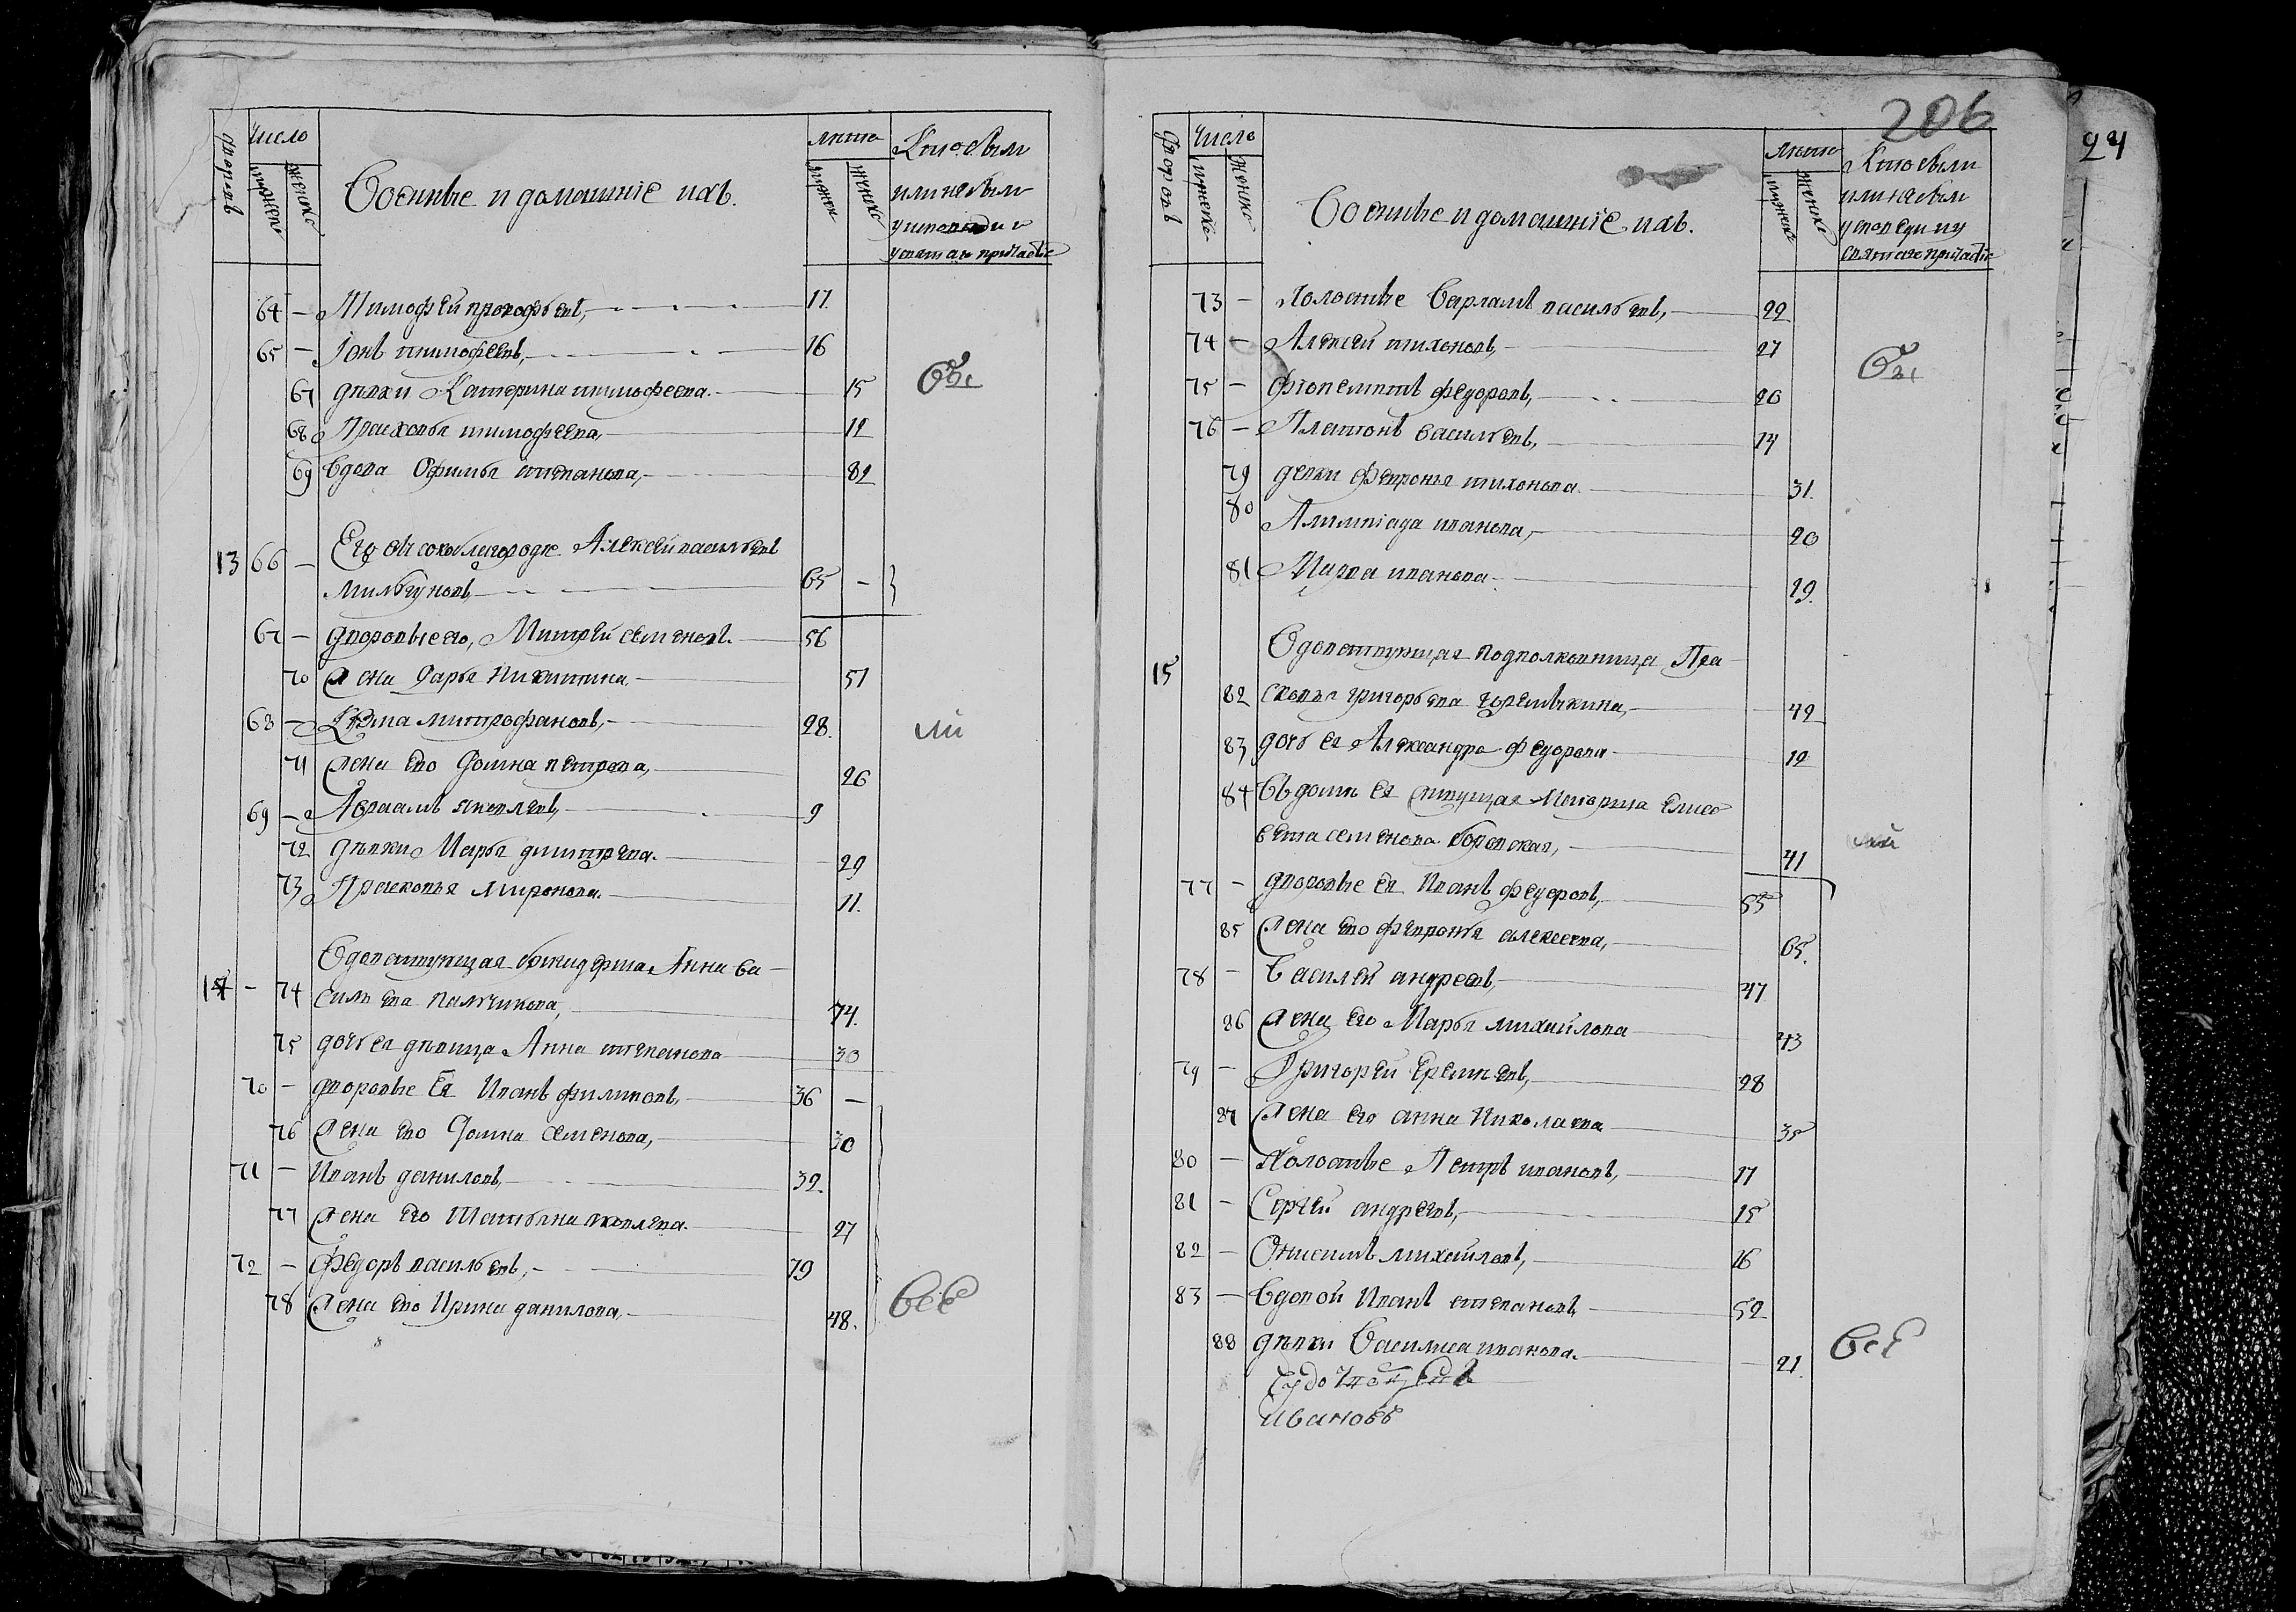 дворовъ
число
мужеска
женска
Военные и домашнїе ихъ.
лѣта
мужеск
женска
Кто были
или не были
у исповеди и
у святаго причастїя
64 — Тимофей прокофьевъ, 17.
65 — Іонъ тимофеевъ, 16
67 дѣвки Катерина тимофеева. 15
68 Прасковья тимофеева, 12
69 вдова Офимья степанова, 82
Его высокоблагородие Алексей васильевъ
13 66 — милгуновъ, 65 —
67 — дворовые его, Митрей семеновъ. 56
70 жена Дарья Никитина. 51
68 — Козма митрофановъ, 28.
71 жена ево Домна петрова, 26
69 — Авраамъ яковлевъ, 9
72 дѣвки Марья дмитрева. 29
73 Прасковья миронова. 11.
Вдовствующая брегадерша Анна ва
14 — 74 сильева палчикова, 74.
75 дочь ея дѣвица Анна степанова 30
70 — дворовые Ея Иванъ филиповъ, 36 —
76 жена ево Домна семенова, 30
71 — Иванъ даниловъ, 32.
77 жена Ево Татьяна яковлева. 27
72 — Федоръ васильевъ, 79
78 жена ево Ирина данилова, 48.
все
206
24
дворовъ
число
мужеска
женска
Военные и домашнїе ихъ.
лѣта
мужеск
женска
Кто были
или не были
у исповеди и у
святаго причастїя
73 — Холостые варламъ васильевъ, 22
74 — Алексей тихоновъ, 27
75 — Фіопемптъ федоровъ, 20
76 — Платонъ васильевъ, 14
79 девки февронья тихонова. 31.
80 Алимпіада иванова, 20
81 Марфа иванова 19.
Вдовствующая подполковница Пра
15
82 сковья григорьева горемыкина, 42
83 дочь ея Александра федорова 12
84 Въ доме ея живущая Маиорша елиса
вета семенова боревская, 41
77 — дворовые ея Иванъ федоровъ, 55
85 жена ево февронья алексеева, 65.
78 — Василей андреевъ, 47
86 жена его Марья михайлова 43
79 — Григорей Еремеевъ, 28
87 жена его анна Николаева 35
80 — Холостые Петръ ивановъ, 17
81 — Сергей андреевъ, 15
82 — Онисимъ михайловъ, 16
83 — Вдовой Иванъ степановъ, 52
88 дѣвки Василиса иванова. 21.
все
ивановъ